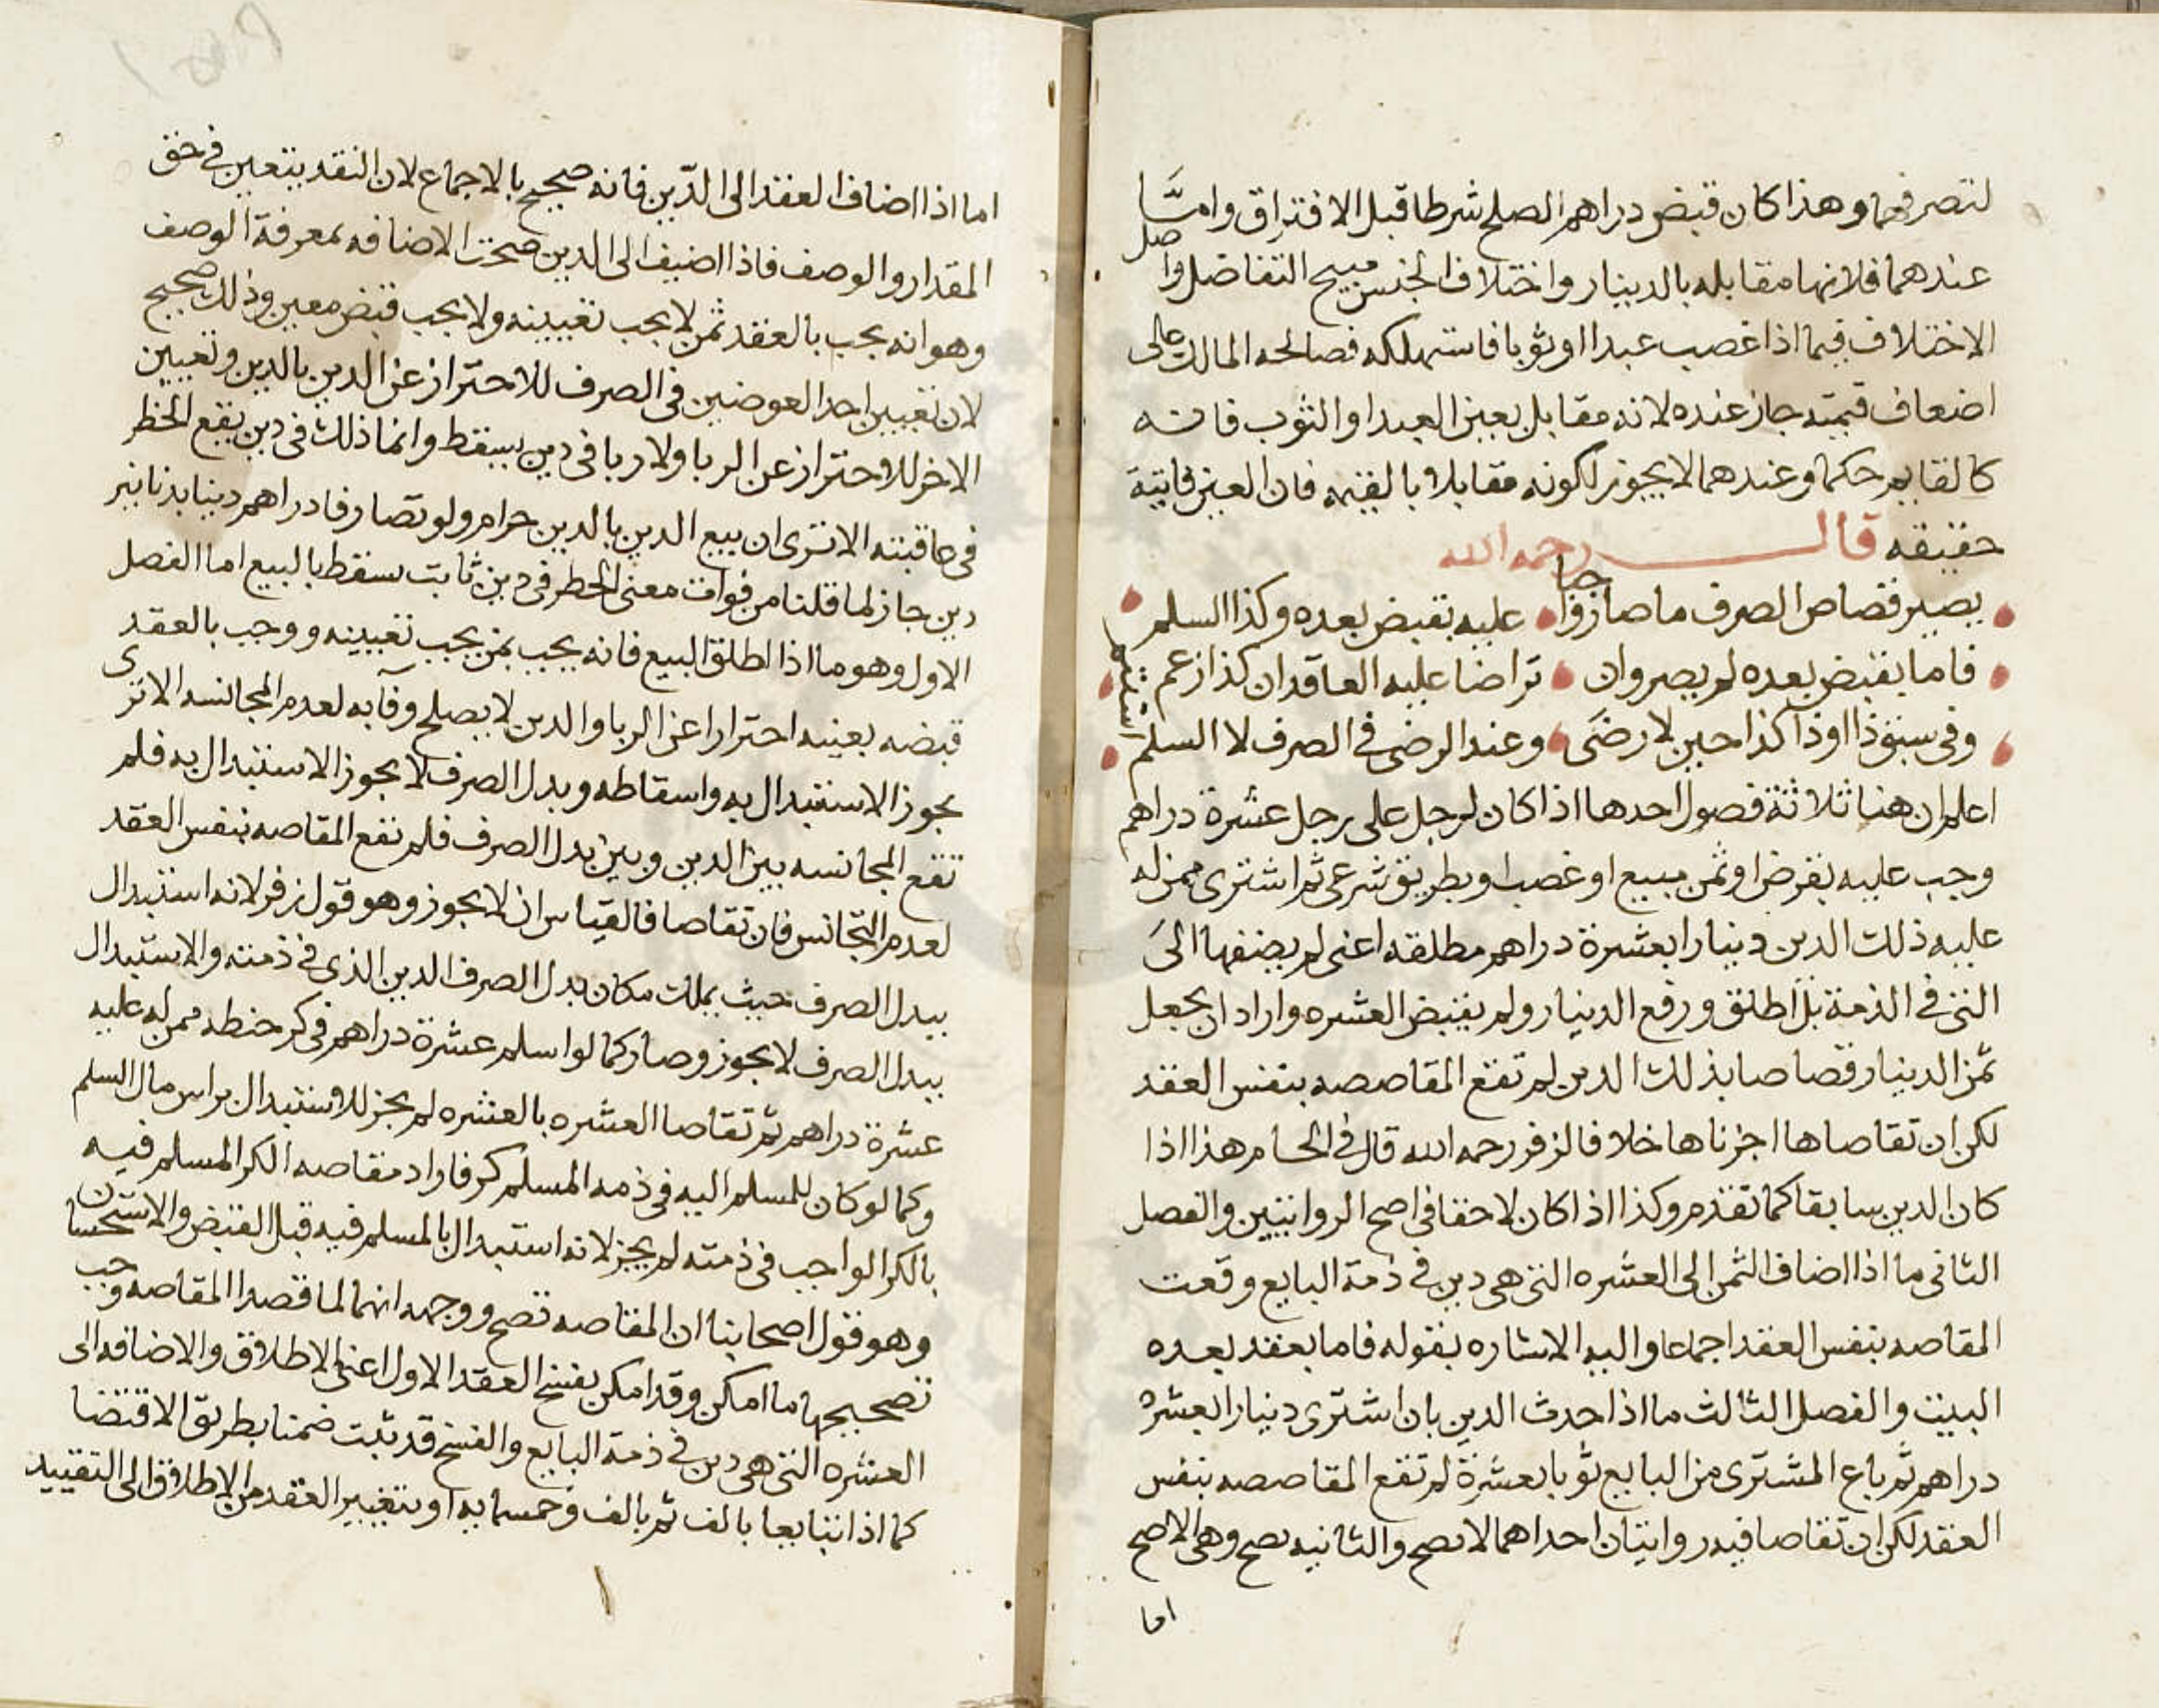 لتصرفهما وهذا كان قبض دراهم الصلح شرطا قبل الافتراق وامـّـا
عندهما فلانها مقابله بالدينار واختلاف الجنس مبيح التفاضل واصل
الاختلاف فيما اذا غصب عبدا اوثوبا فاستهلكه فصالحه المالك على
اضعاف قيمته جاز عنده لانه مقابل بعين العبد او الثوب فانه
كالقايم حكما وعندهما لا يجوز لكونه مقابلا بالقيمه فان العين فايتة
حقيقه قال رحمه الله
يصير قصاص الصرف ما صارفوا عليه بقبض بعده وكذا السلم
فاما بقبض بعده لم يصر وان تراضا عليه العاقدان كذا زعم
وفى ستوذا اوذا كذا حين لا رضى وعند الرضى في الصرف لا السلم
اعلم ان هنا ثلاثة فصول احدها اذا كان لرجل على رجل عشرة دراهم
وجب عليه بقرض اوثمن مبيع او غصب او بطريق شرعى ثم اشترى ممن له
عليه ذلك الدين دينارا بعشرة دراهم مطلقه اعنى لم يضفها الى
التى في الذمة بل اطلق ورفع الدينار ولم يقبض العشره واراد ان يجعل
ثمن الدينار قصاصا بذلك الدين لم تقع المقاصصه بنفس العقد
لكن ان تقاصاها اجزناها خلافا لزفر رحمه الله قال في الحسام هذا اذا
كان الدين سابقا كما تقدم وكذا اذا كان لاحقا في اصح الروايتين والفصل
الثانى ما اذا اضاف الثمن الى العشره التى هى دين في ذمة البايع وقعت
المقاصه بنفس العقد اجماعا واليه الاشاره بقوله فاما بعقد بعده
البيت والفصل الثالث ما اذا حدث الدين بان اشترى دينارا بعشرة
دراهم ثم باع المشترى من البايع ثوبا بعشرة لم تقع المقاصصه بنفس
العقد لكن ان تقاصا فيه روايتان احداهما لا يصح والثانيه يصح وهى الاصح
اما
اما اذا اضاف العقد الى الدّين فانه صحيح بالاجماع لان النقد يتعين في حق
المقدار والوصف فاذا اضيف الى الدين صحت الاضافه لمعرفة الوصف
وهو انه يجب بالعقد ثمن لا يجب تعيينه ولا يجب قبض معين وذلك صحيح
لان تعيين احد العوضين فى الصرف للاحتراز عن الدين بالدين وتعيين
الاخر للاحتراز عن الربا ولا ربا فى دين يسقط وانما ذلك فى دين يقع الخطر
فى عاقبته الا ترى ان بيع الدين بالدين حرام ولو تصارفا دراهم دينا بدنانير
دين جاز لما قلنا من فوات معنى الخطر فى دين ثابت يسقط بالبيع اما الفصل
الاول وهو ما اذا اطلق البيع فانه يجب ثمن يجب تعيينه ووجب بالعقد
قبضه بعينه احترازا عن الربا والدين لا يصلح وفآبه لعدم المجانسه الا ترى
يجوز الاستبدال به واسقاطه وبدل الصرف لا يجوز الاستبدال به فلم
تقع المجانسه بين الدين وبين بدل الصرف فلم تقع المقاصه بنفس العقد
لعدم التجانس فان تقاصا فالقياس ان لا يجوز وهو قول زفر لانه استبدال
ببدل الصرف حيث يملك مكان بدل الصرف الدين الذى في ذمته والاستبدال
ببدل الصرف لا يجوز وصار كما لو اسلم عشرة دراهم في كر حنطه ممن له عليه
عشرة دراهم ثم تقاصا العشره بالعشره لم يجز للاستبدال براس مال السلم
وكما لو كان للمسلم اليه في ذمه المسلم كر فاراد مقاصه الكر المسلم فيه
بالكر الواجب في ذمته لم يجز لانه استبدال بالمسلم فيه قبل القبض والاستحسان
وهو قول اصحابنا ان المقاصه تصح ووجهه انهما لما قصدا المقاصه وجب
تصحيحها ما امكن وقد امكن بفسخ العقد الاول اعنى الاطلاق والاضافه الى
العشره التى هى دين في ذمة البايع والفسخ قد يثبت ضمنا بطريق الاقتضا
كما اذا تبايعا بالف ثم بالف وخمسمايه او بتغيير العقد من الاطلاق الى التقييد